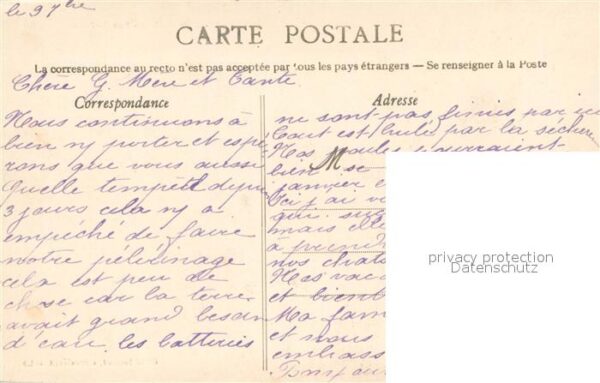 le 9 7bre
CARTE POSTALE
La correspondance au recto n'est pas acceptée par tous les pays étrangers — Se renseigner à la Poste
Chère G. Mère et Tante
Correspondance
Nous continuons à
bien ns porter et espé-
rons que vous aussi
Quelle tempête depuis
3 jours cela ns a
empêché de faire
notre pélérinage
cela est peu de
chose car la terre
avait grand besoin
d'eau. les batteries
Adresse
ne sont pas finies par ici
Tout est brulé par la séche
Nos poules pourraient
M
bien se
jamais
Ici j'ai
qui
mais
à prend
nos
Nos vac
et bient
Ma fam
et nous
embrass
privacy protection
Datenschutz